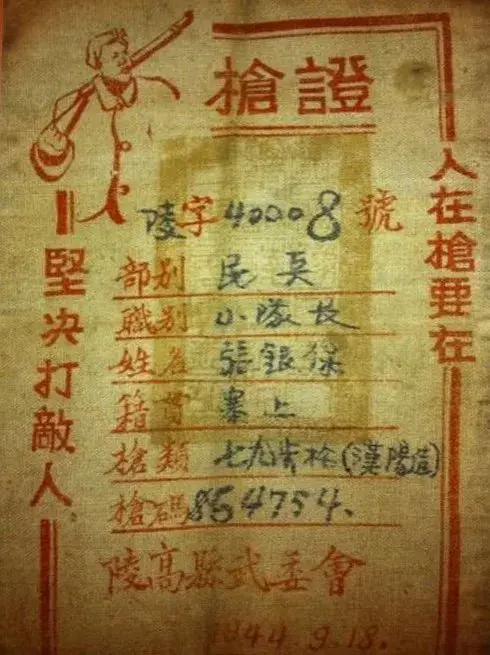 槍證
人在槍要在
堅决打敵人
陵字40008號
部别 民兵
職别 小隊長
姓名 張銀保
籍貫 寨上
槍類 七九步槍(漢陽造)
槍碼 854754.
陵高縣武委會
1944.9.18.